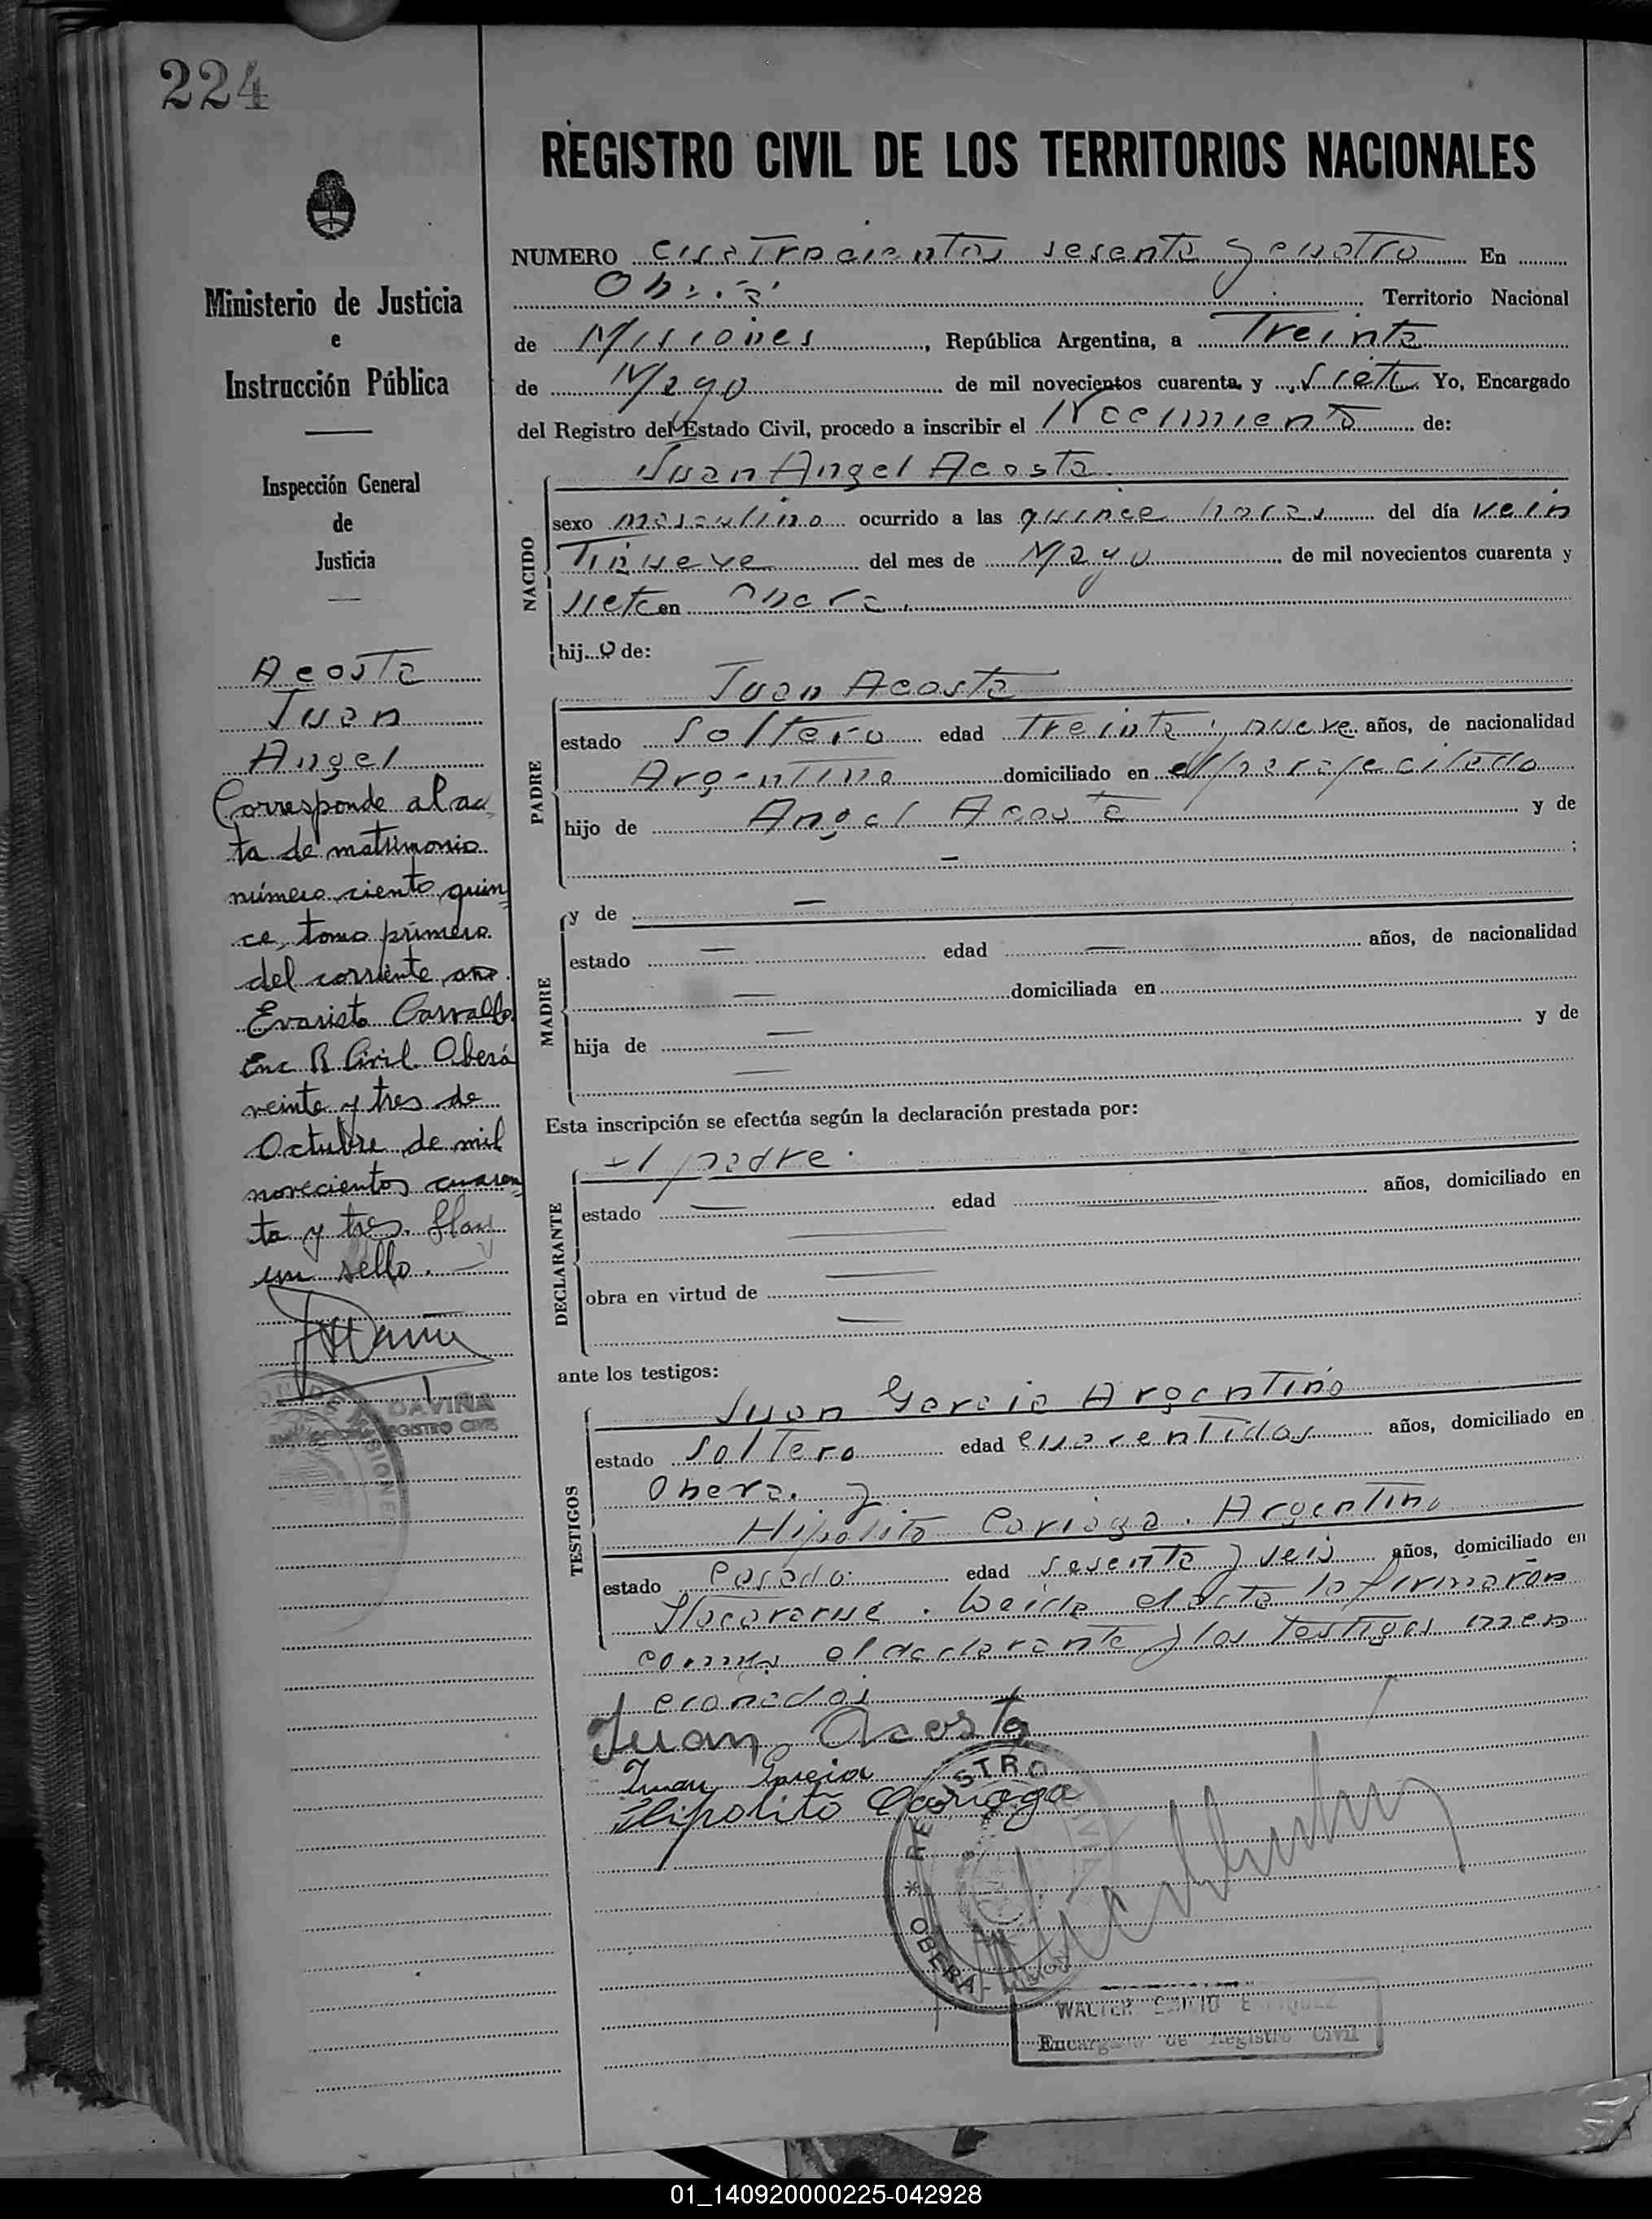 224
Ministerio de Justicia
e
Instrucción Pública
Inspección General
de
Justicia
Acosta
Juan
Angel
Corresponde al ac
ta de matrimonio
número ciento quin
ce, tomo primero
del corriente año.
Evaristo Carvallo
Enc R Civil. Oberá
veinte y tres de
Octubre de mil
novecientos cuaren
ta y tres. Hay
un sello.
DAVIÑA
REGISTRO CIVIL
REGISTRO CIVIL DE LOS TERRITORIOS NACIONALES
NUMERO cuatrocientos sesenta y cuatro En
Oberá Territorio Nacional
de Misiones, República Argentina, a Treinta
de Mayo de mil novecientos cuarenta y Siete Yo, Encargado
del Registro del Estado Civil, procedo a inscribir el Nacimiento de:
Juan Angel Acosta
NACIDO
sexo masculino ocurrido a las quince horas del día vein
Tinueve del mes de Mayo de mil novecientos cuarenta y
siete en Obera.
hij o de:
PADRE
Juan Acosta
estado Soltero edad Treinta y nueve años, de nacionalidad
Argentino domiciliado en
hijo de Angel Acosta y de
— ;
MADRE
y de —
estado — edad — años, de nacionalidad
— domiciliada en
hija de — y de
—
Esta inscripción se efectúa según la declaración prestada por:
DECLARANTE
el padre.
estado — edad años, domiciliado en
—
obra en virtud de —
—
ante los testigos:
TESTIGOS
Juan Garcia Argentino
estado Soltero edad cuarentidos años, domiciliado en
Obera. y
Hipolito Cariaga. Argentino
estado Casado. edad sesenta y seis años, domiciliado en
Leida el acta la firmaron
el declarante y los testigos men
cionados
Juan Acosta
Juan Garcia
Hipolito Cariaga
REGISTRO
OBERA
WALTER
Encargado de Registro Civil
01_140920000225-042928